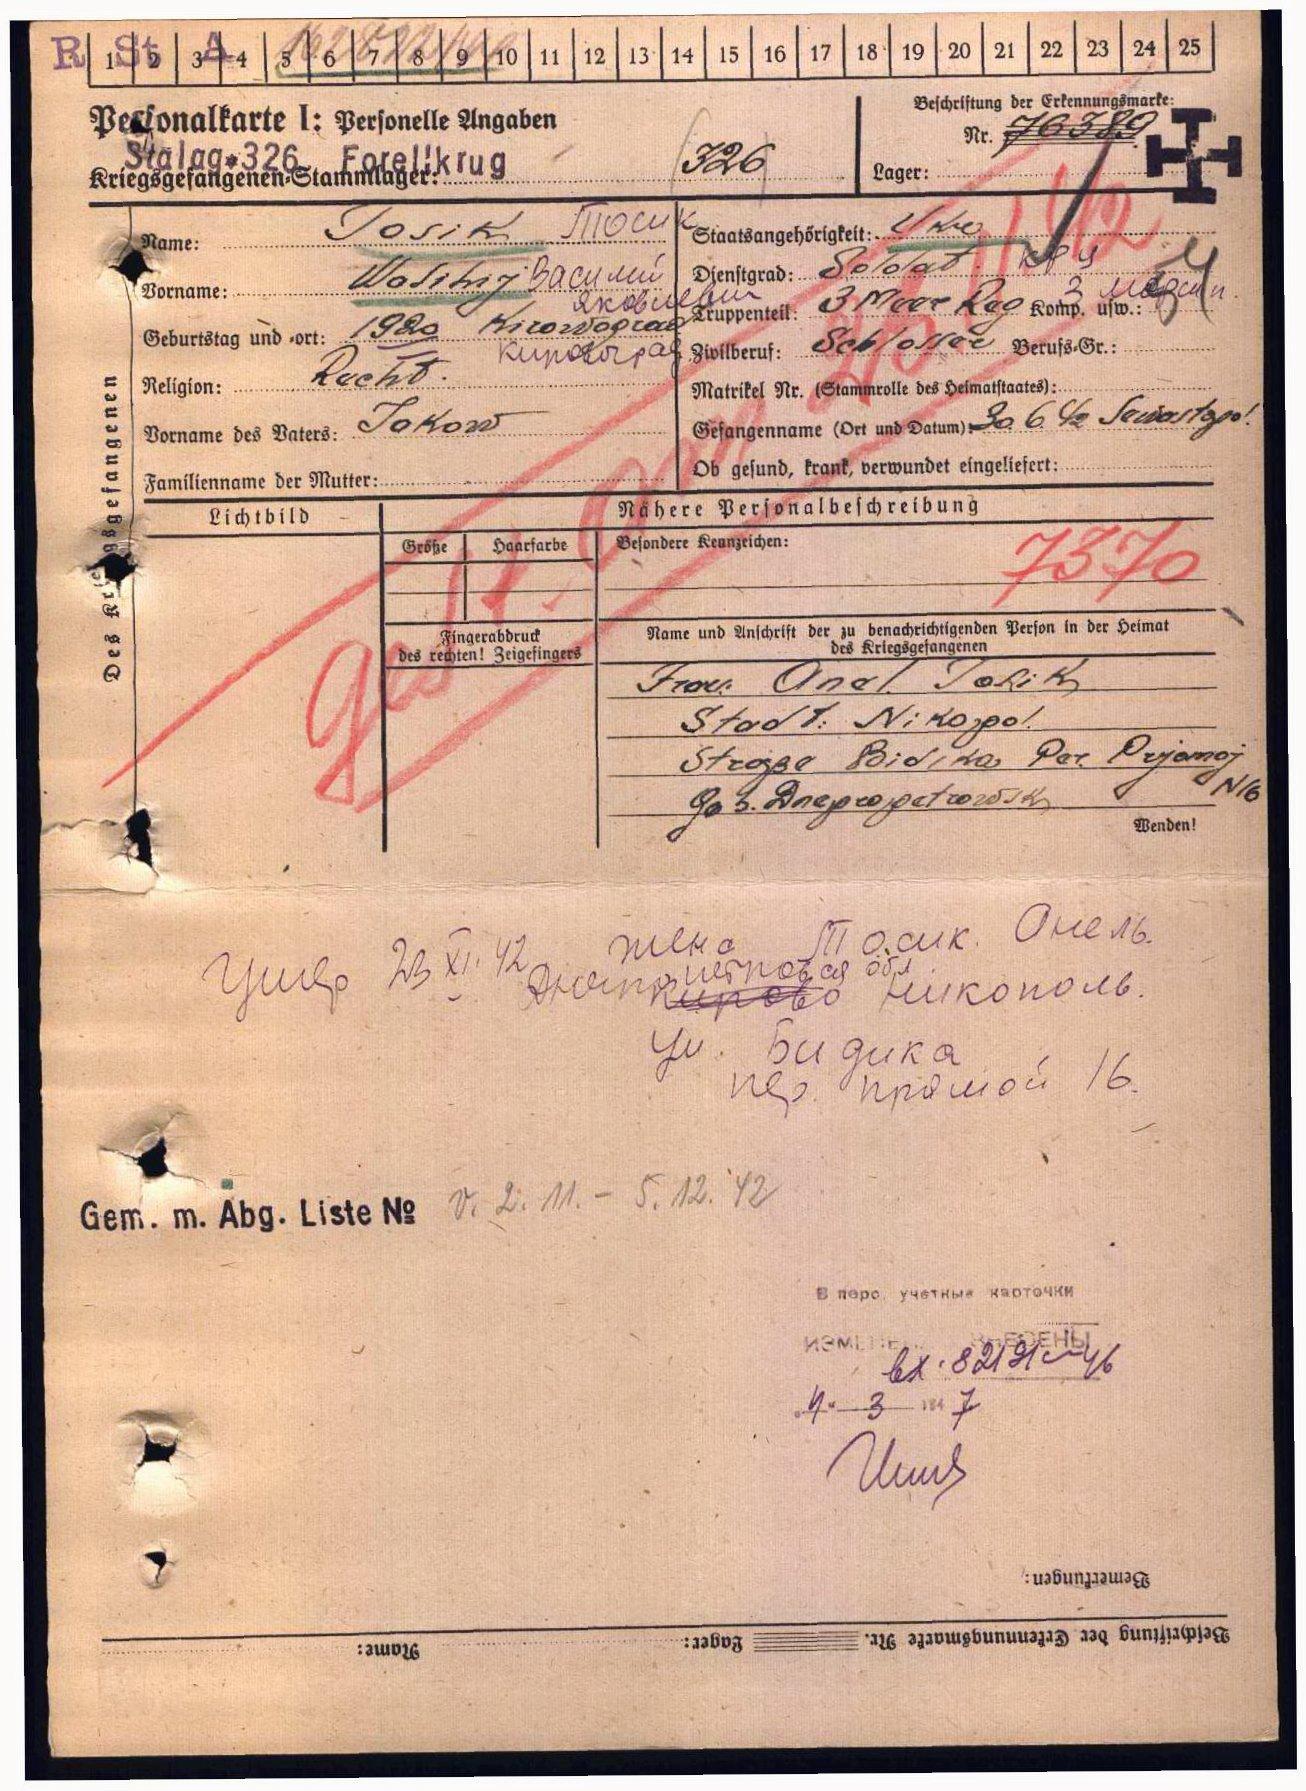 R St A
1 2 3 4 5 6 7 8 9 10 11 12 13 14 15 16 17 18 19 20 21 22 23 24 25
Personalkarte I: Personelle Angaben
Beschriftung der Erkennungsmarke:
Nr. 76389
Stalag 326 Forellkrug
Kriegsgefangenen-Stammlager:
326
Lager:
Name: Tosik Тосик
Staatsangehörigkeit: Ukr
Vorname: Wasilij Василий
Яковлевич
Dienstgrad: Soldat кр-ц
Truppenteil: 3 Meer Reg Komp. usw.: 3 морск п.
Geburtstag und -ort: 1920 Kirowograd
Кировоград
Zivilberuf: Schlosser Berufs-Gr.:
Religion: Rucht.
Matrikel Nr. (Stammrolle des Heimatstaates):
Vorname des Vaters: Jakow
Gefangennahme (Ort und Datum): 30 6 42 Sewastopol
Familienname der Mutter:
Ob gesund, krank, verwundet eingeliefert:
Des Kriegsgefangenen
Lichtbild
Nähere Personalbeschreibung
Größe Haarfarbe
Besondere Kennzeichen:
7370
gest. am 23.11.42
Fingerabdruck
des rechten! Zeigefingers
Name und Anschrift der zu benachrichtigenden Person in der Heimat
des Kriegsgefangenen
Frau: Anel. Tosik
Stadt: Nikopol.
Straße Bidika Per. Prjamoj
N16
Dnepropetrowsk
Wenden!
Умер 23 XI. 42
жена Тосик. Анель.
Днепропетровская обл
Кирово Никополь.
ул. Бидика
пер. прямой 16.
Gem. m. Abg. Liste № v. 2. 11. - 5. 12. 42
В перс. учетные карточки
ИЗМЕНЕН. ВНЕСЕНЫ
вх. 8
4 3 194 7
Bemerkungen:
Beschriftung der Erkennungsmarke Nr. Lager: Name: